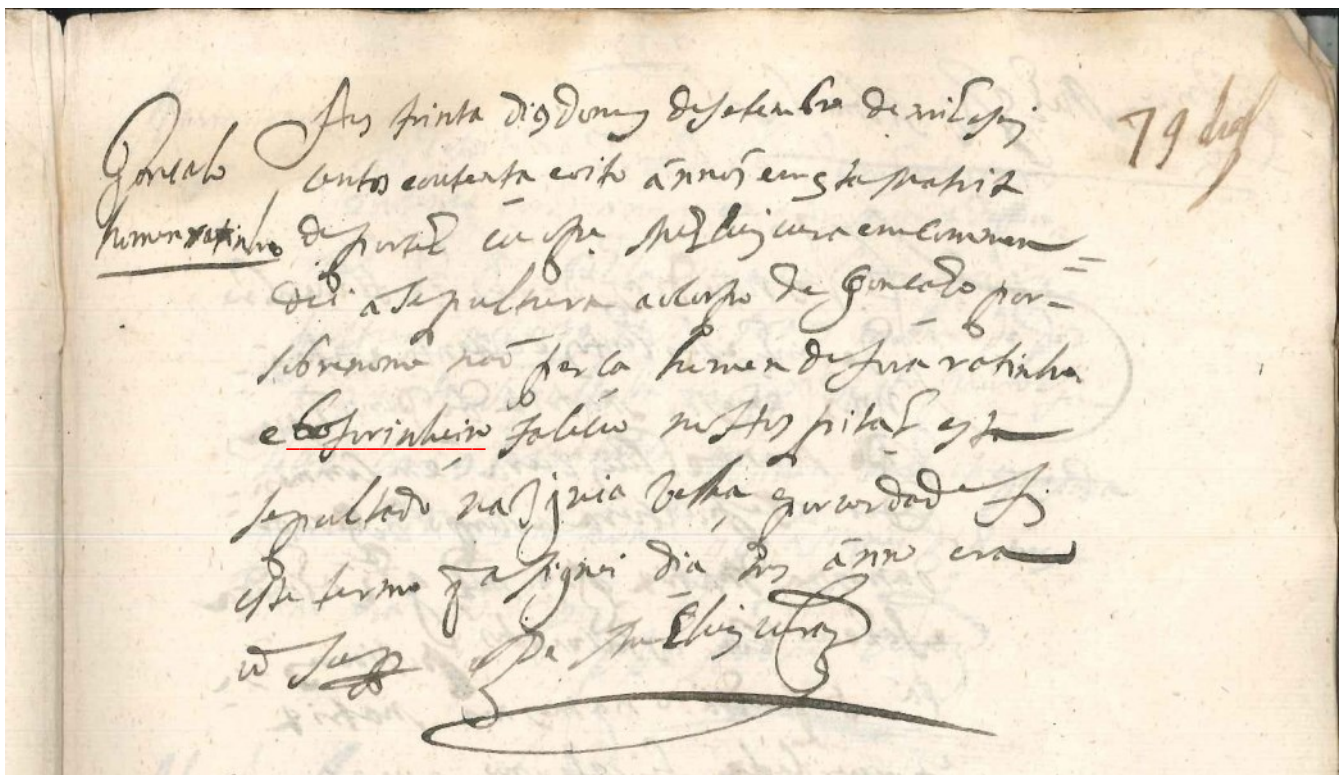 Gonçalo
homen ratinho
Aos trinta dias do mes de setembro de mil e seis
centos e outenta e oito ãnnos em esta matris
de portel eu o pe Mel luis cura emcommen=
dei a sepultura ao corpo de Gonçalo por-
sobrenome não perca homen de fora ratinho
e bofurinheiro faleceo no Hospital esta
sepultado na Igreia velha e por verdade fis
este termo q asignei dia mes ãnno era
ut supra
O Pe Mel luis cura
79